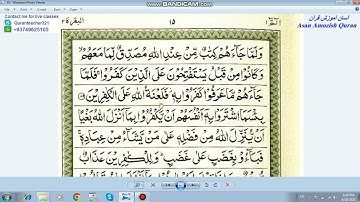 Contact me for live classes
Quranteacher321
+93749625105
آسان آموزش قرآن
Asan Amozish Quran
البقرة ٢
١٥
الٓمّٓ ١
وَلَمَّا جَآءَهُمْ كِتٰبٌ مِّنْ عِنْدِ اللّٰهِ مُصَدِّقٌ لِّمَا مَعَهُمْ ۙ
وَكَانُوْا مِنْ قَبْلُ يَسْتَفْتِحُوْنَ عَلَى الَّذِيْنَ كَفَرُوْا ۚ فَلَمَّا
جَآءَهُمْ مَّا عَرَفُوْا كَفَرُوْا بِهٖ ؗ فَلَعْنَةُ اللّٰهِ عَلَى الْكٰفِرِيْنَ
بِئْسَمَا اشْتَرَوْا بِهٖۤ اَنْفُسَهُمْ اَنْ يَّكْفُرُوْا بِمَاۤ اَنْزَلَ اللّٰهُ بَغْيًا
اَنْ يُّنَزِّلَ اللّٰهُ مِنْ فَضْلِهٖ عَلٰى مَنْ يَّشَآءُ مِنْ عِبَادِهٖ ۚ
فَبَآءُوْ بِغَضَبٍ عَلٰى غَضَبٍ ؕ وَلِلْكٰفِرِيْنَ عَذَابٌ